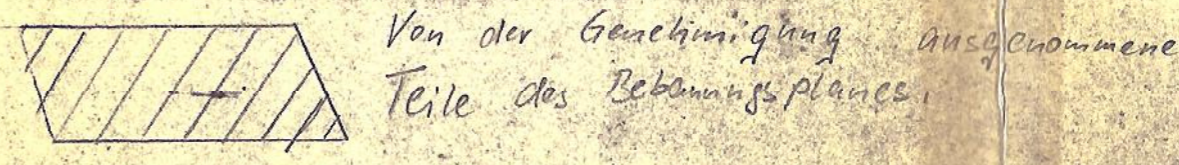 Von der Genehmigung ausgenommene
Teile des Bebauungsplanes.